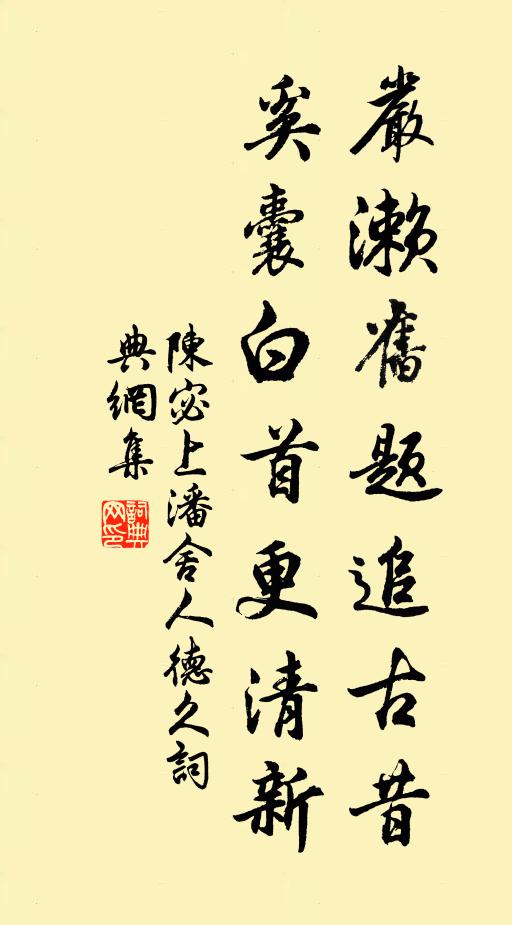 嚴瀨舊題追古昔
奚囊白首更清新
陳宓上潘舍人德久詞
典網集
詞典
网印